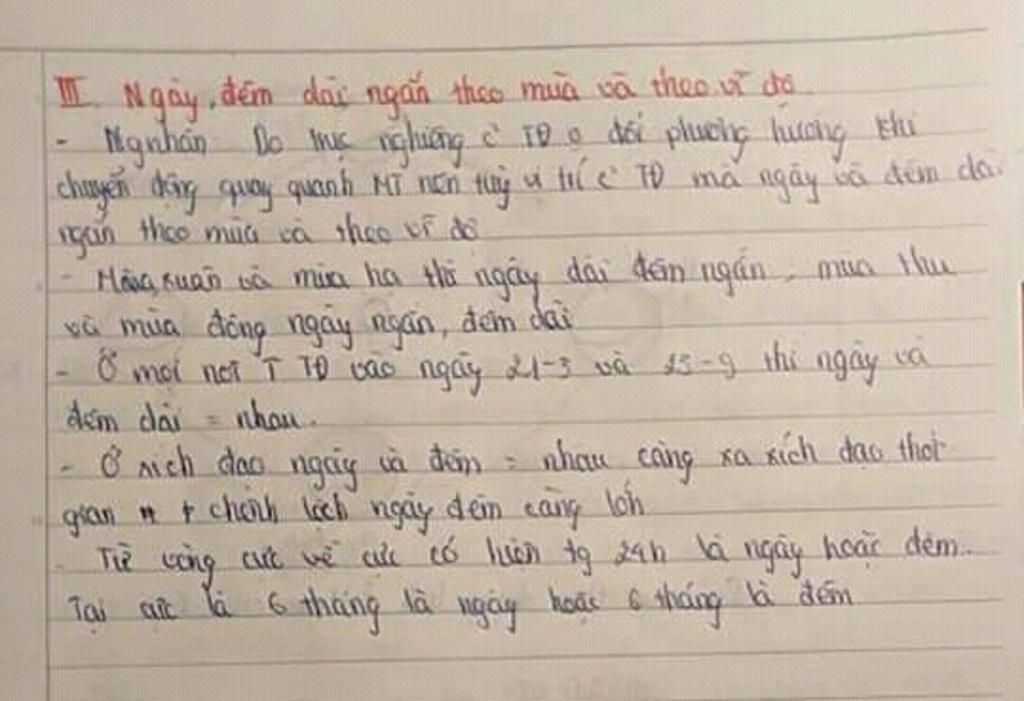 III. Ngày, đêm dài ngắn theo mùa và theo vĩ độ.
- Ng nhân Do trục nghiêng c' TĐ o đổi phương hướng khi
chuyển động quay quanh MT nên tuỳ vị trí c' TĐ mà ngày và đêm dài
ngắn theo mùa và theo vĩ độ
- Mùa xuân và mùa hạ thì ngày dài đêm ngắn, mùa thu
và mùa đông ngày ngắn, đêm dài
- Ở mọi nơi T TĐ vào ngày 21-3 và 23-9 thì ngày và
đêm dài = nhau.
- Ở xích đạo ngày và đêm = nhau càng xa xích đạo thời
gian chênh lệch ngày đêm càng lớn
- Từ vòng cực về cực có hiện tg 24h là ngày hoặc đêm.
Tại cực là 6 tháng là ngày hoặc 6 tháng là đêm